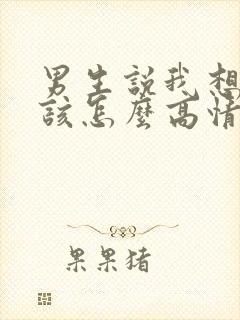 男生說我想
該怎麼高情
果果猪